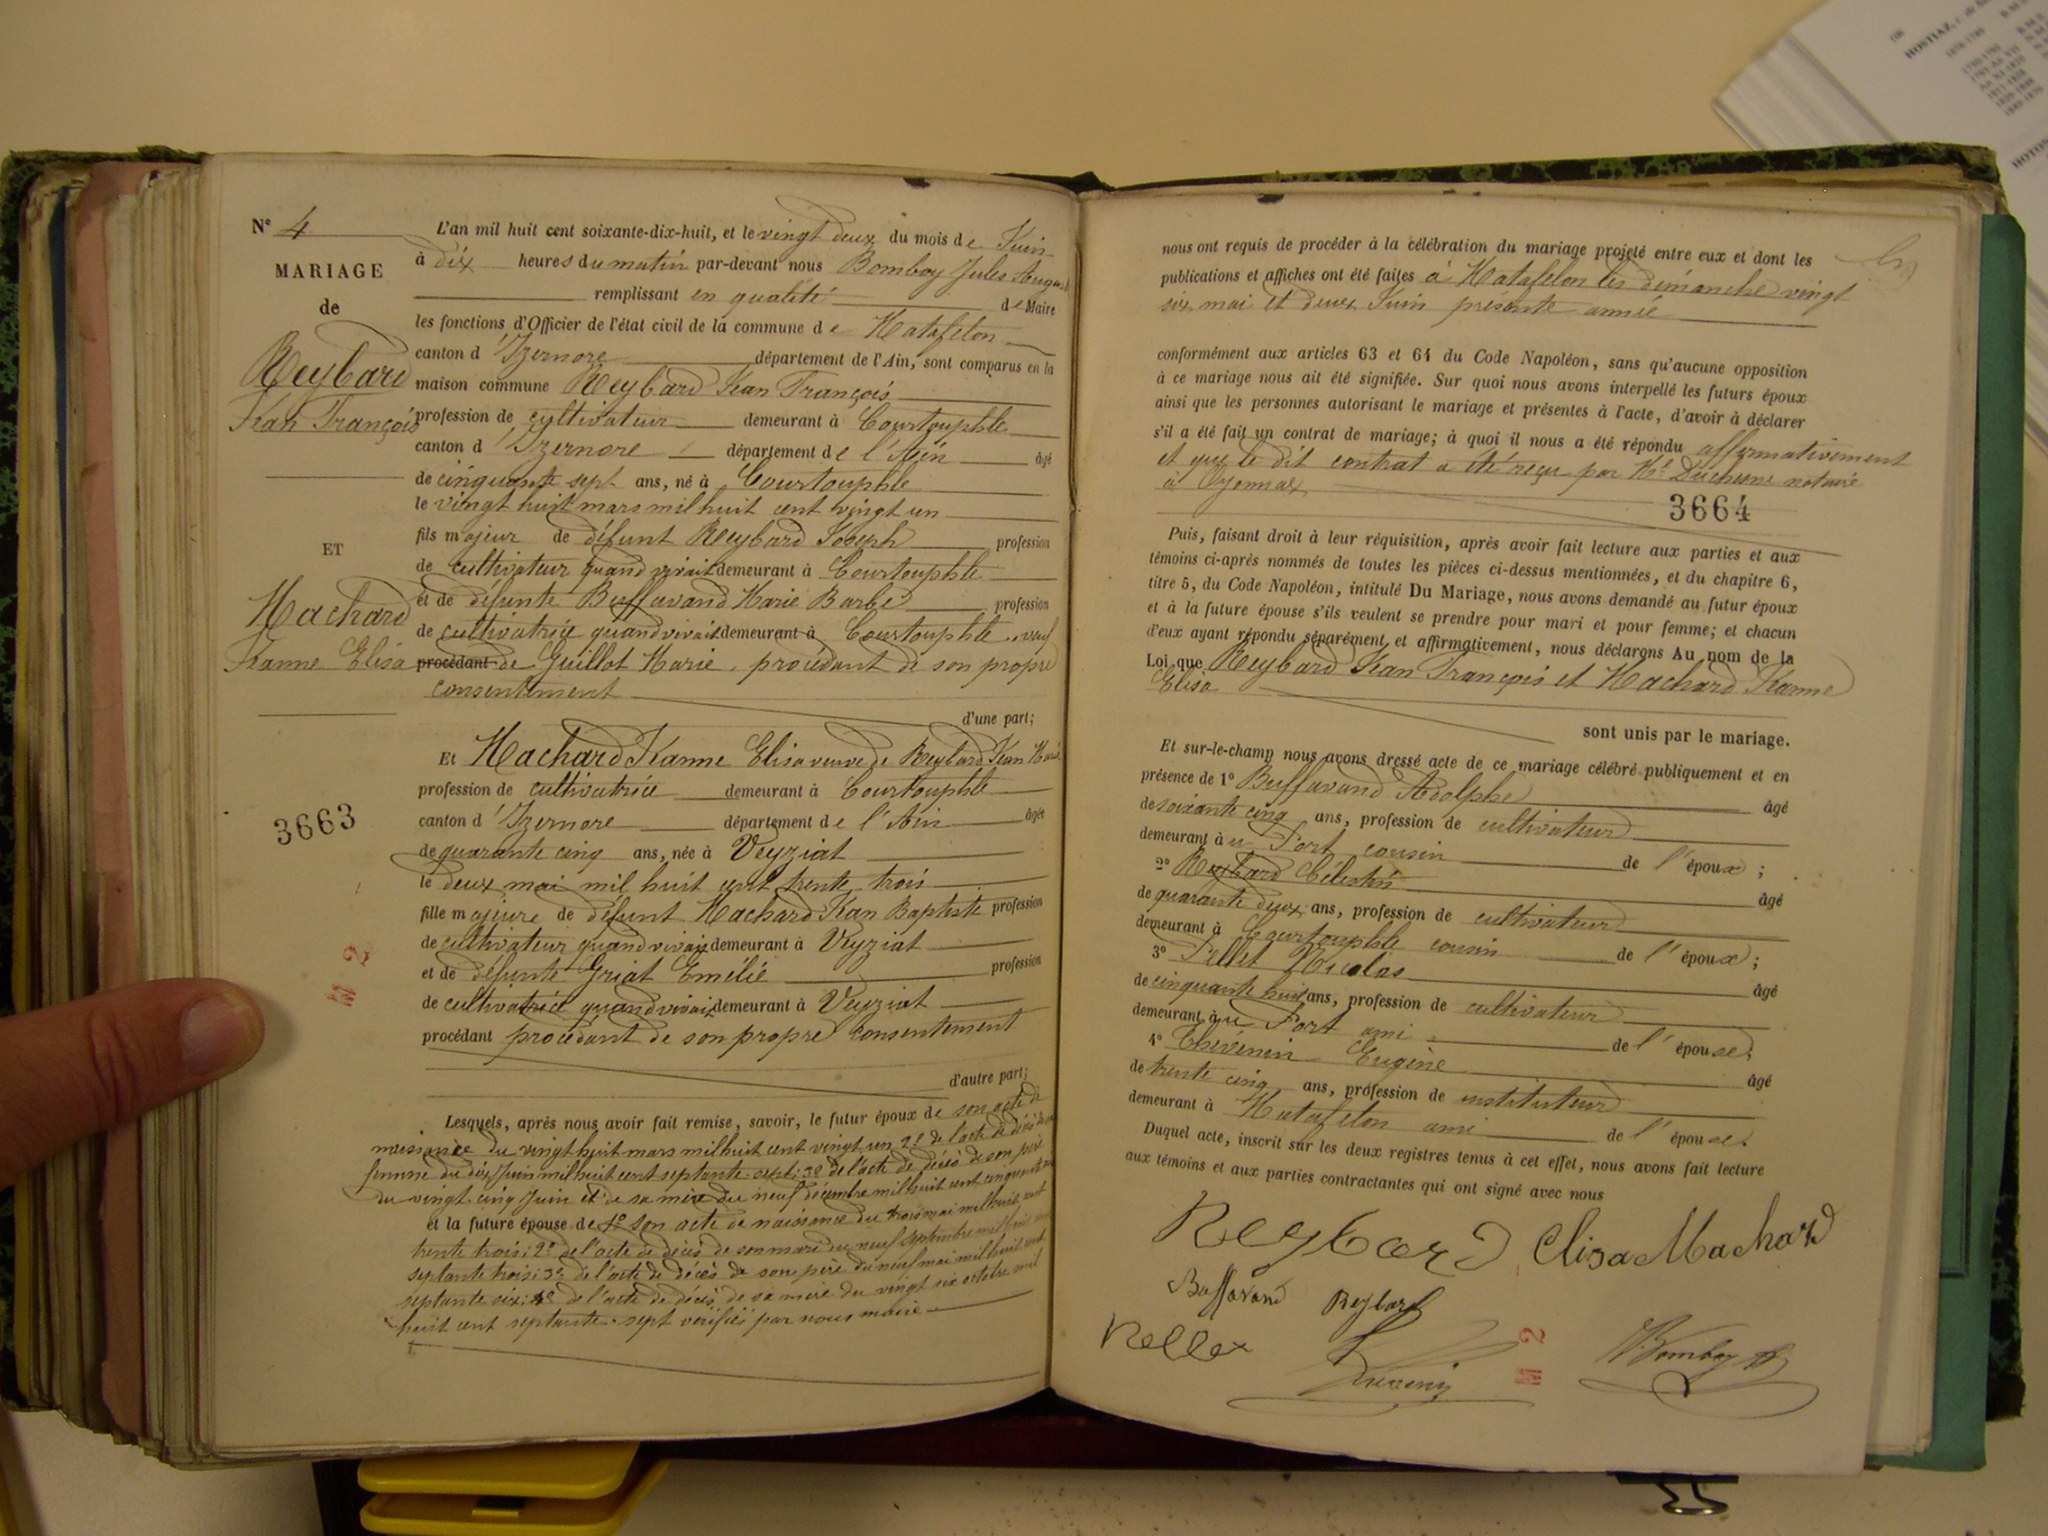 N° 4
MARIAGE
de
Reybard
Jean François
ET
Machard
Jeanne Elisa
3663
M 2
L'an mil huit cent soixante-dix-huit, et le vingt deux du mois de Juin
à dix heures du matin par-devant nous Bomboy Jules
remplissant en qualité de Maire
les fonctions d'Officier de l'état civil de la commune de Matafelon
canton d'Izernore département de l'Ain, sont comparus en la
maison commune Reybard Jean François
profession de cultivateur demeurant à Courtouphle
canton d'Izernore département de l'Ain âgé
de cinquante sept ans, né à Courtouphle
le vingt huit mars mil huit cent vingt un
fils majeur de défunt Reybard Joseph profession
de cultivateur quand vivait demeurant à Courtouphle
et de défunte Buffavand Marie Barbe profession
de cultivatrice quand vivait demeurant à Courtouphle, veuf
procédant de Guillot Marie, procédant de son propre
consentement
d'une part;
Et Machard Jeanne Elisa veuve de Reybard Jean Marie
profession de cultivatrice demeurant à Courtouphle
canton d'Izernore département de l'Ain âgée
de quarante cinq ans, née à Veyziat
le deux mai mil huit cent trente trois
fille majeure de défunt Machard Jean Baptiste profession
de cultivateur quand vivait demeurant à Veyziat
et de défunte Griat Emélie profession
de cultivatrice quand vivait demeurant à Veyziat
procédant procédant de son propre consentement
d'autre part;
Lesquels, après nous avoir fait remise, savoir, le futur époux de son acte de
naissance du vingt huit mars mil huit cent vingt un 2° de l'acte de décès de sa
femme du dix Juin mil huit cent septante sept; 3° de l'acte de décès de son père
du vingt cinq Juin et de sa mère du neuf décembre mil huit cent cinquante
et la future épouse de 1° son acte de naissance du trois mai mil huit cent
trente trois; 2° de l'acte de décès de son mari du neuf septembre mil huit cent
septante trois; 3° de l'acte de décès de son père du neuf mai mil huit cent
septante six; 4° de l'acte de décès de sa mère du vingt six octobre mil
huit cent septante sept vérifiés par nous maire
nous ont requis de procéder à la célébration du mariage projeté entre eux et dont les
publications et affiches ont été faites à Matafelon les dimanche vingt
six mai et deux Juin présente année
conformément aux articles 63 et 64 du Code Napoléon, sans qu'aucune opposition
à ce mariage nous ait été signifiée. Sur quoi nous avons interpellé les futurs époux
ainsi que les personnes autorisant le mariage et présentes à l'acte, d'avoir à déclarer
s'il a été fait un contrat de mariage; à quoi il nous a été répondu affirmativement
et que le dit contrat a été reçu par Me Duchesne notaire
à Oyonnax
3664
Puis, faisant droit à leur réquisition, après avoir fait lecture aux parties et aux
témoins ci-après nommés de toutes les pièces ci-dessus mentionnées, et du chapitre 6,
titre 5, du Code Napoléon, intitulé Du Mariage, nous avons demandé au futur époux
et à la future épouse s'ils veulent se prendre pour mari et pour femme; et chacun
d'eux ayant répondu séparément et affirmativement, nous déclarons Au nom de la
Loi que Reybard Jean François et Machard Jeanne
Elisa
sont unis par le mariage.
Et sur-le-champ nous avons dressé acte de ce mariage célébré publiquement et en
présence de 1° Buffavand Adolphe âgé
de soixante cinq ans, profession de cultivateur
demeurant à u Port cousin de l'époux;
2° Reybard Célestin âgé
de quarante deux ans, profession de cultivateur
demeurant à Courtouphle cousin de l'époux;
3° Pellet Nicolas âgé
de cinquante huit ans, profession de cultivateur
demeurant à u Port ami de l'épouse;
4° Thévenin Eugène âgé
de trente cinq ans, profession de instituteur
demeurant à Matafelon ami de l'épouse.
Duquel acte, inscrit sur les deux registres tenus à cet effet, nous avons fait lecture
aux témoins et aux parties contractantes qui ont signé avec nous
Reybard Elisa Machard
Buffavand Reybard
Pellet Thévenin J. Bomboy
M 2